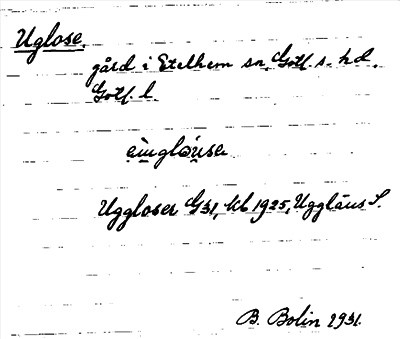 Uglose.
gård i Etelhem sn, Gotl. s. hd,
Gotl. l.
Uggloser G31, kb 1925, Ugglaus S.
B. Bolin 1931.